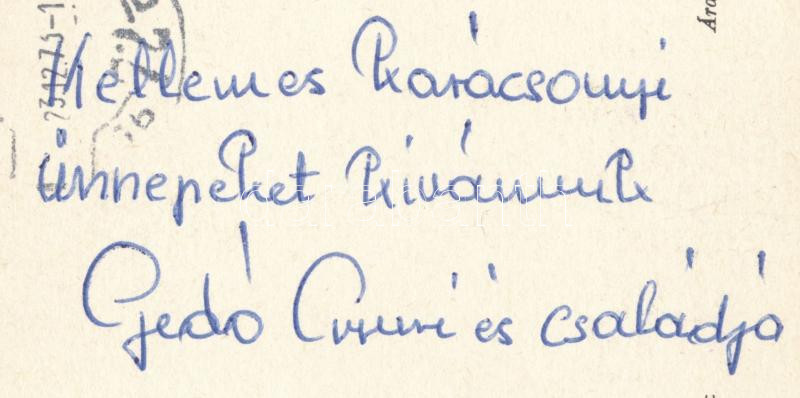 Kellemes Karácsonyi
ünnepeket kivánunk
Gedó és családja
Ára